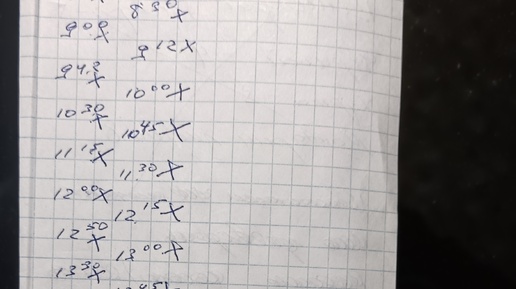 8 30 X
9 00 X
9 12 X
9 42 X
10 00 X
10 30 X
10 45 X
11 15 X
11 30 X
12 00 X
12 15 X
12 50 X
13 00 X
13 30 X